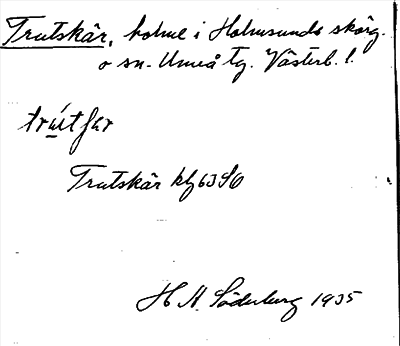 Trutskär, holme i Holmsunds skärg.
o sn. Umeå tg. Västerb. l.
Trutskär kbl 63 SO
H A Söderberg 1935